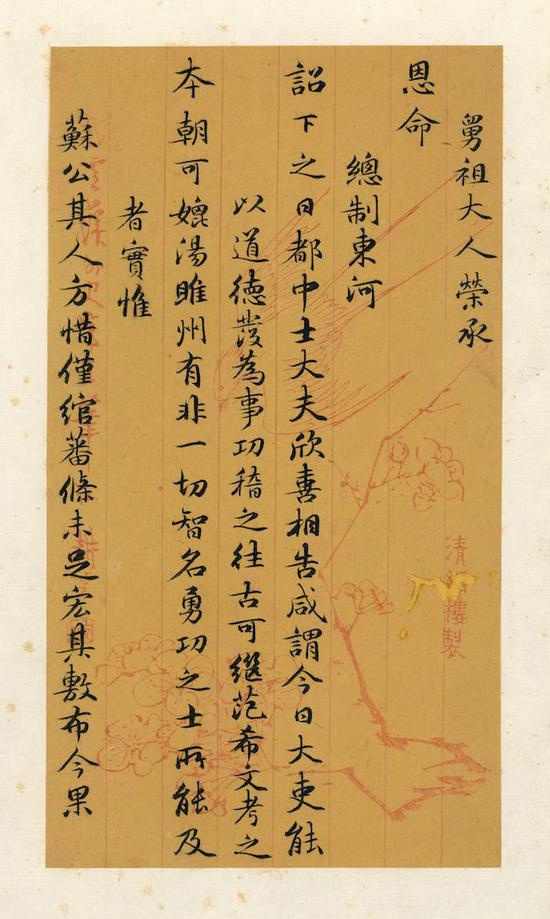 舅祖大人榮承
恩命
總制東河
詔下之日都中士大夫欣喜相告咸謂今日大吏能
以道德發為事功稽之往古可繼范希文考之
本朝可媲湯睢州有非一切智名勇功之士所能及
者實惟
蘇公其人方惜僅綰藩條未足宏其敷布今果
清 樓製